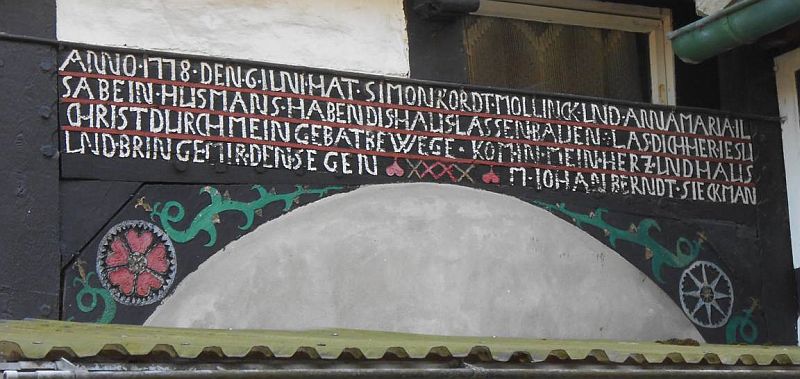 ANNO·1778·DEN·G·IUNI·HAT·SIMON KORDT·MOLLINCK·UND·ANNA MARIA IL
SABEIN·HUSMANS·HABEN DIS HAUS LASSEN BAUEN·LAS DICH HER IESU
CHRIST DURCH MEIN GEBAT BEWEGE·KOM IN·MEIN·HERZ·UND HAUS
UND·BRINGE MIR·DEN SEGEN M·IOHAN BERNDT·SIECKMAN